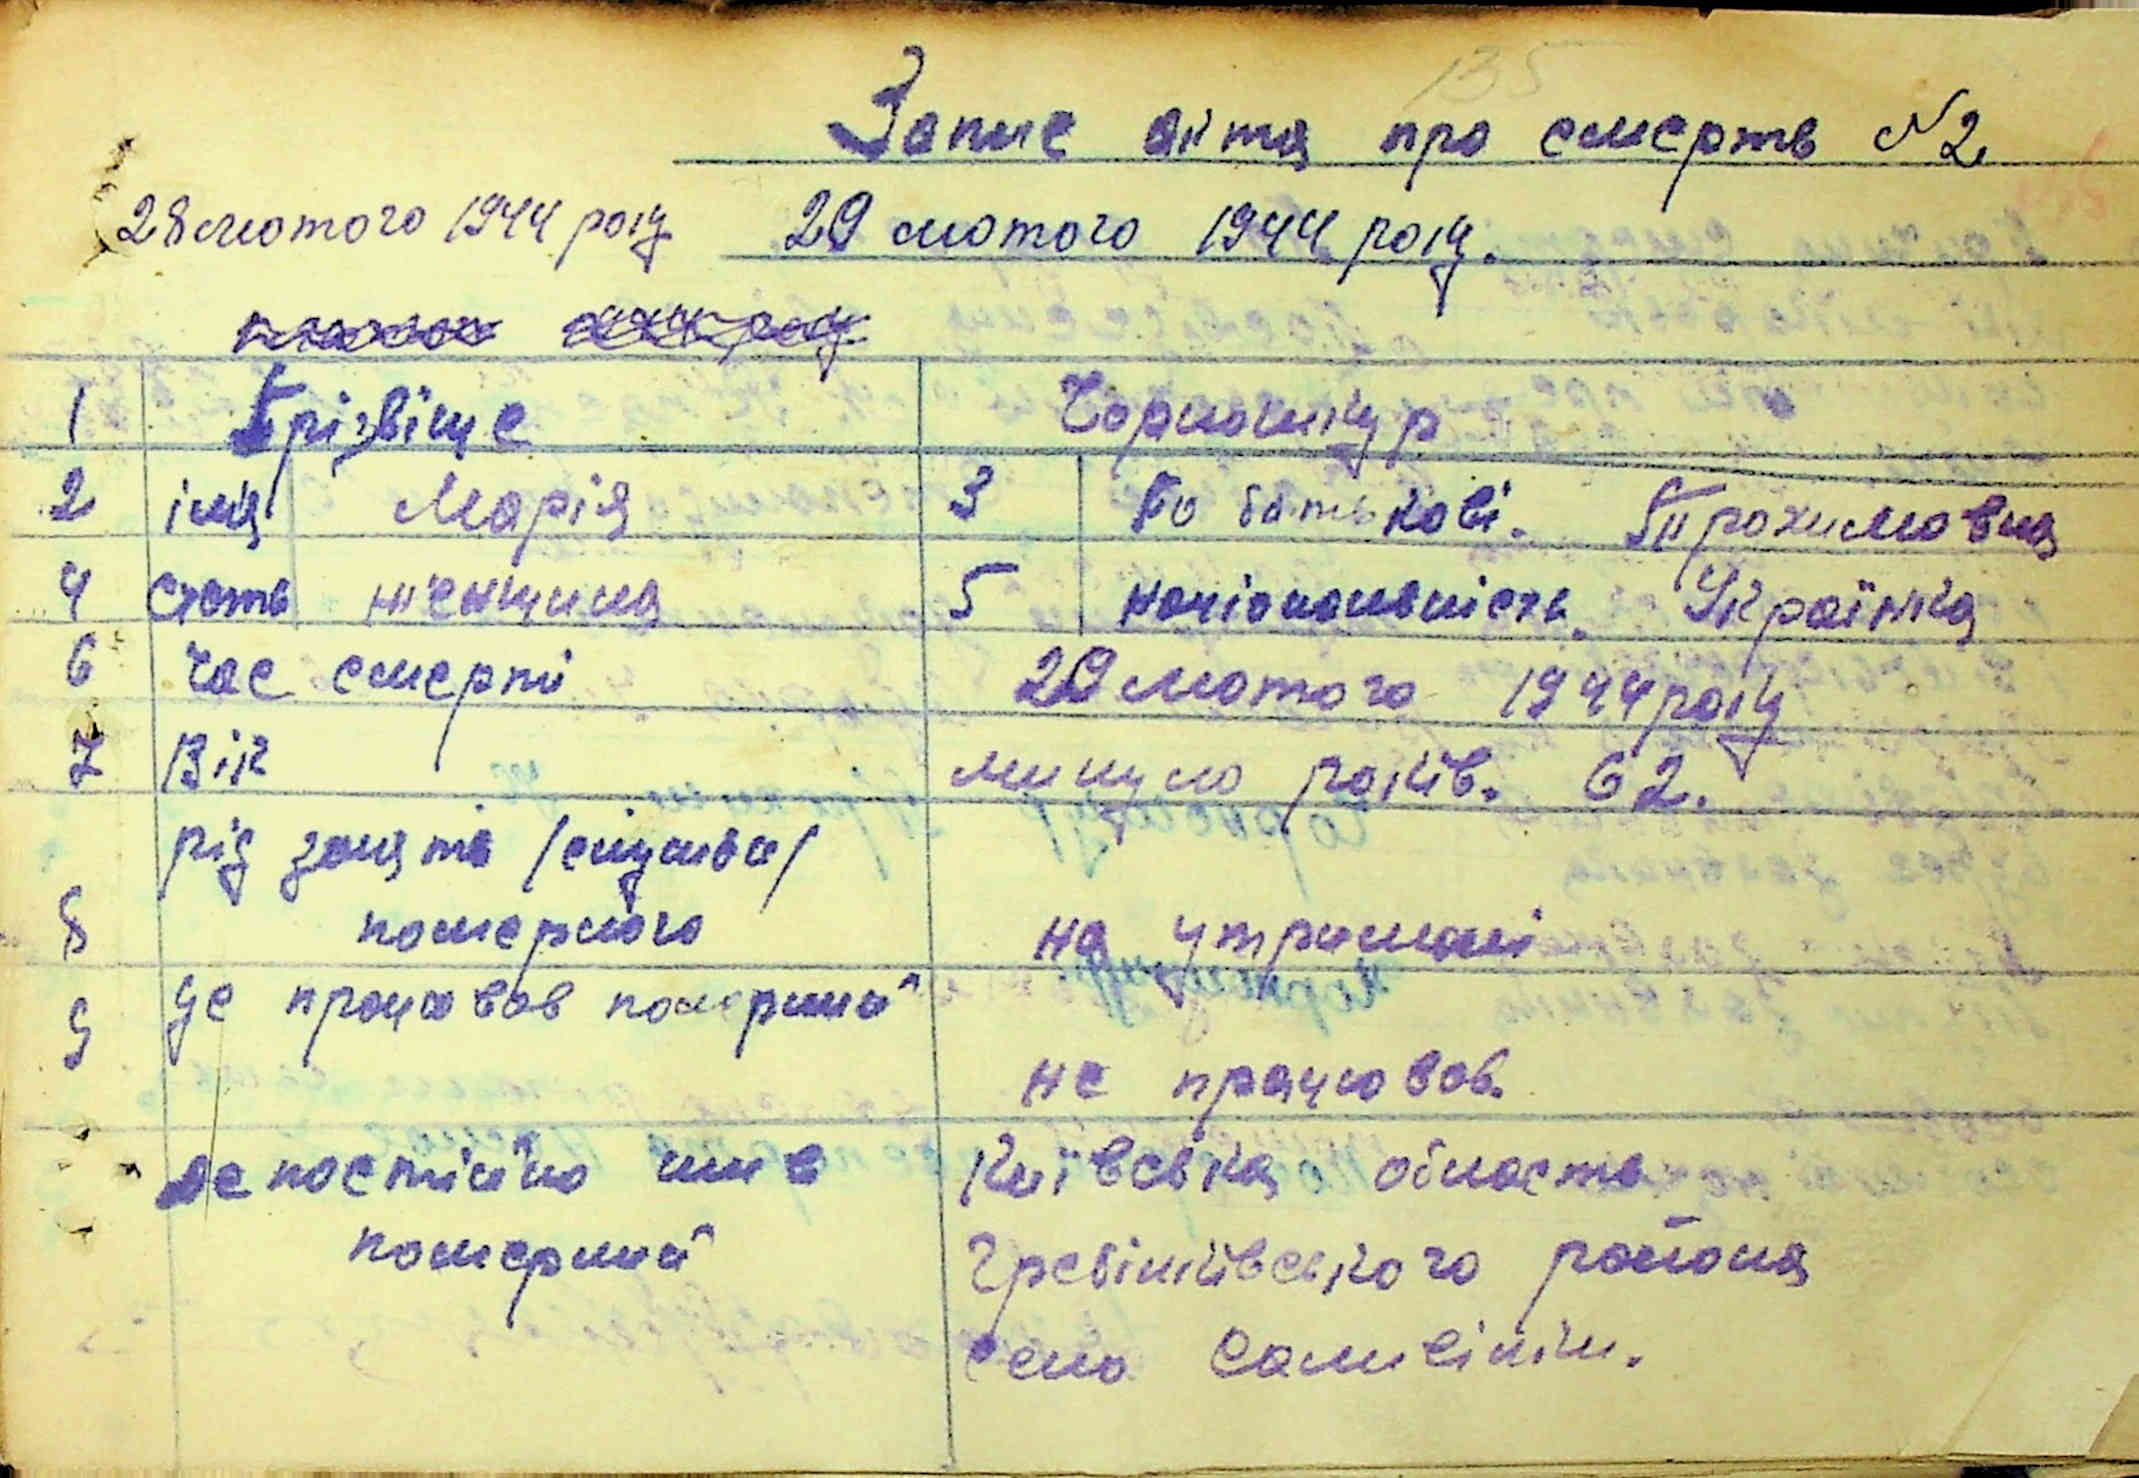 135
Запис акта про смерть №2
28 лютого 1944 року 29 лютого 1944 року.
1 Прізвіще Чорношкур
2 імя Марія 3 По батькові. Трохимовна
4 стать женщина 5 національність. Українка
6 Час смерті 29 лютого 1944 року
7 Вік минуло років. 62.
рід занятв /служби/
8 померлого на утримані
9 де працював померший
не працював.
де постійно жив Київська область
померший Гребінківського района
село Саливінки.